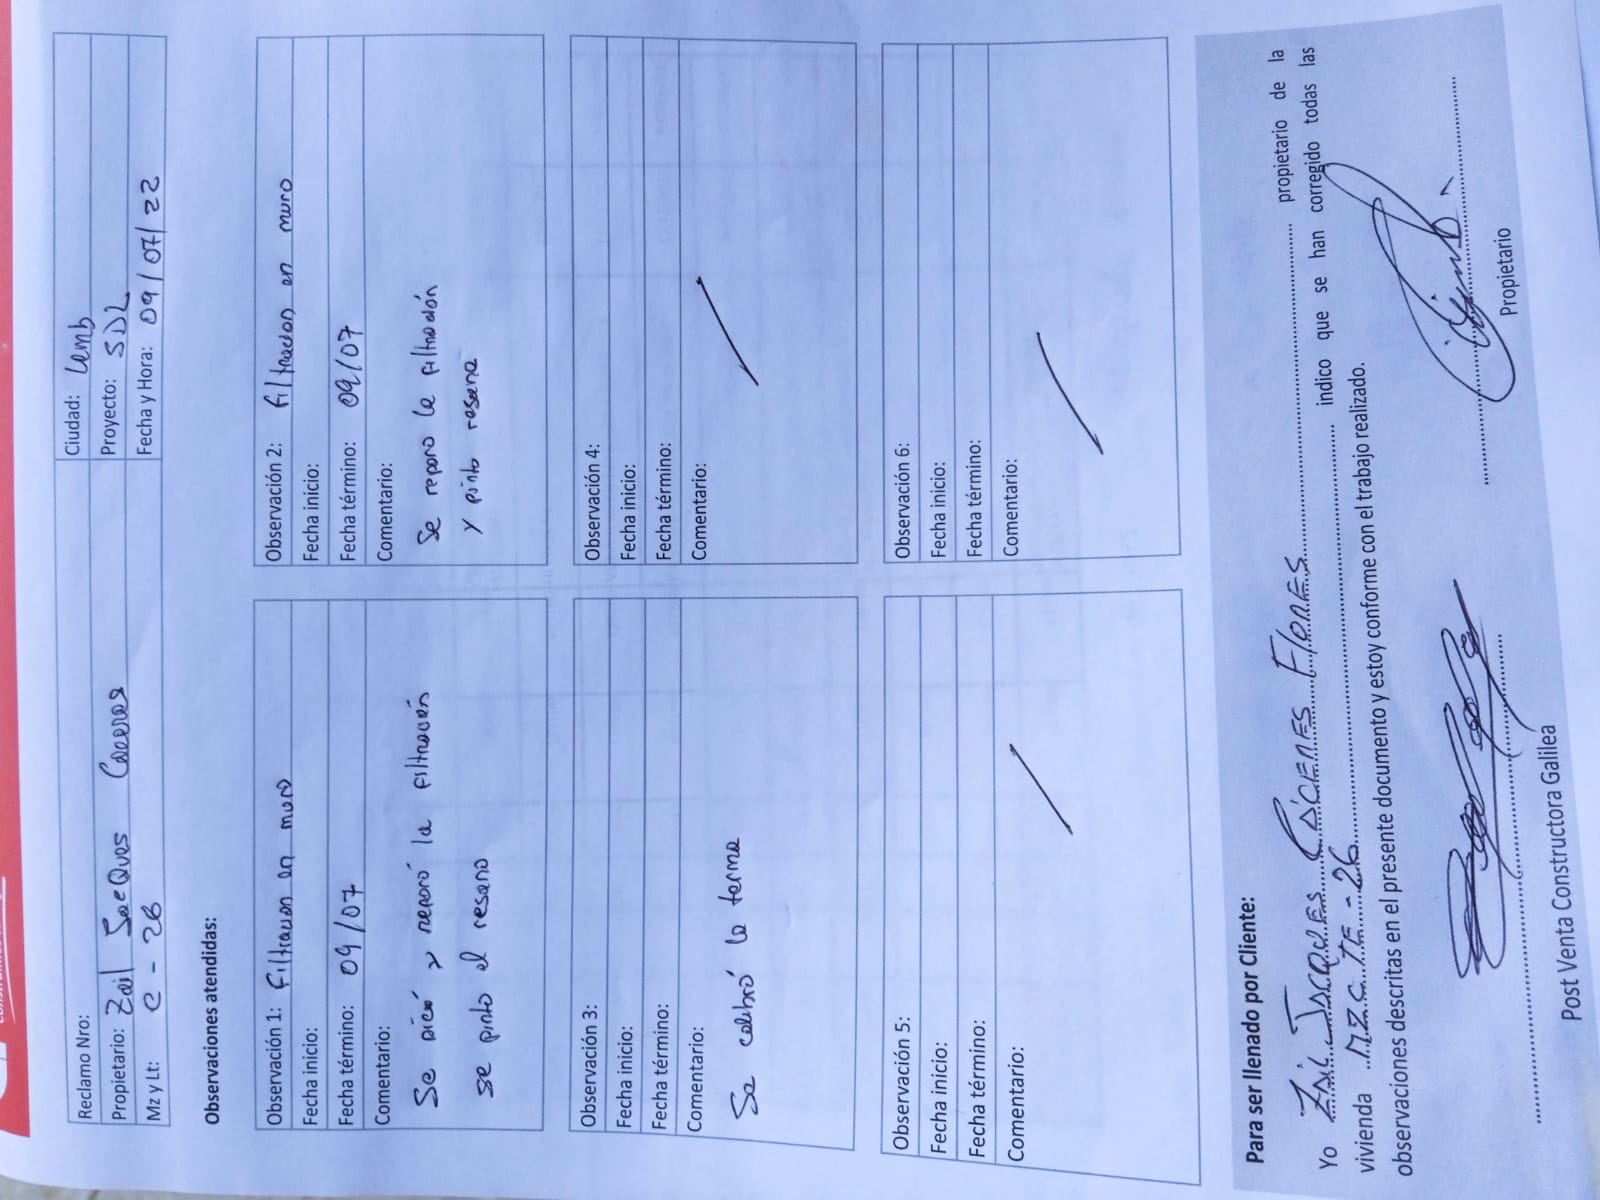 Reclamo Nro:
Ciudad: Lamb
Propietario: Zail Jacques
Proyecto: SDL
Mz y Lt: C - 26
Fecha y Hora: 09/07/22
Observaciones atendidas:
Observación 1: Filtracion en muro
Fecha inicio:
Fecha término: 09/07
Comentario:
Se picó y reparó la filtración
se pinto el resane
Observación 2: Filtracion en muro
Fecha inicio:
Fecha término: 09/07
Comentario:
Se reparo la filtración
y pinto resane
Observación 3:
Fecha inicio:
Fecha término:
Comentario:
Se calibró la terma
Observación 4:
Fecha inicio:
Fecha término:
Comentario:
Observación 5:
Fecha inicio:
Fecha término:
Comentario:
Observación 6:
Fecha inicio:
Fecha término:
Comentario:
Para ser llenado por Cliente:
Yo ZAIL JACQUES FLORES propietario de la
vivienda MZ C LTE - 26 indico que se han corregido todas las
observaciones descritas en el presente documento y estoy conforme con el trabajo realizado.
Post Venta Constructora Galilea
Propietario